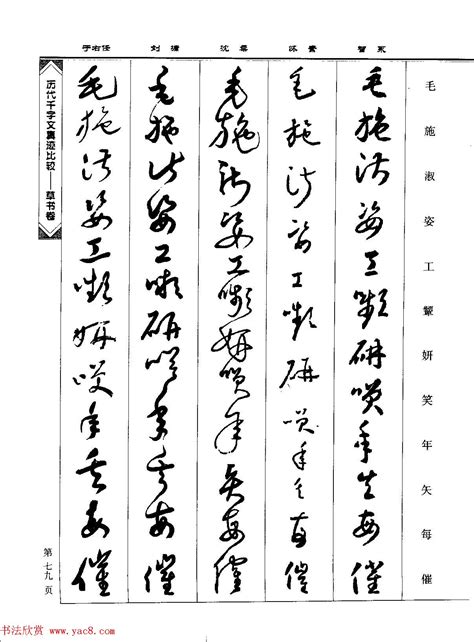 毛施淑姿工颦妍笑年矢每催
智永
毛施淑姿工嚬研咲年矢每催
怀素
毛施淑姿工嚬研咲年矢每催
沈粲
毛施淑姿工嚬妍咲年矢每催
刘墉
毛施淑姿工嚬研咲年矢每催
于右任
毛施淑姿工嚬妍咲年矢每催
历代千字文真迹比较——草书卷
第七九页
书法欣赏 www.yac8.com